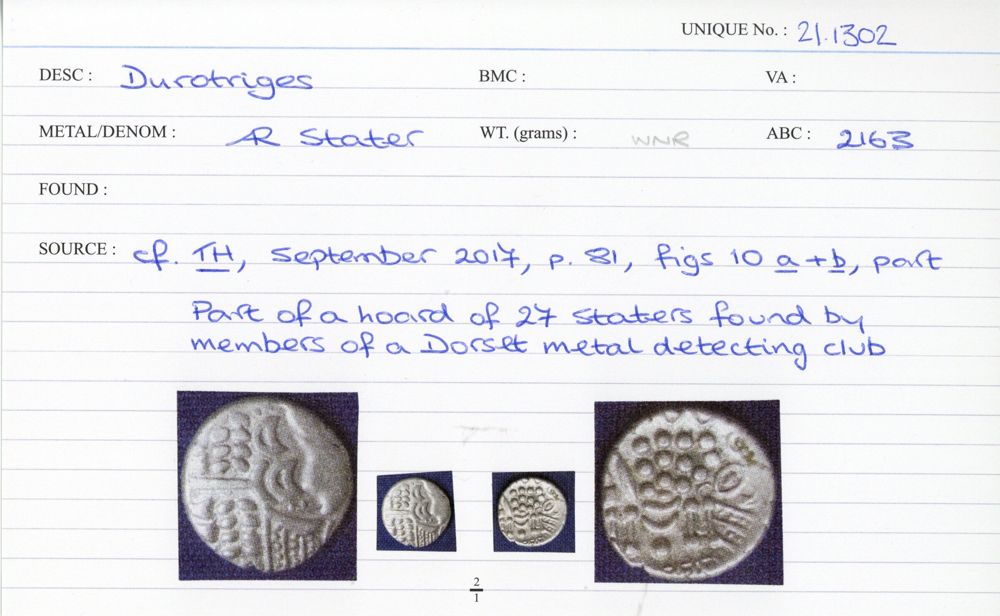 UNIQUE No. : 21.1302
DESC : Durotriges BMC : VA :
METAL/DENOM : AR Stater WT. (grams) : WNR ABC : 2163
FOUND :
SOURCE : cf. TH, September 2017, p. 81, figs 10 a + b, part
Part of a hoard of 27 staters found by
members of a Dorset metal detecting club
2
1